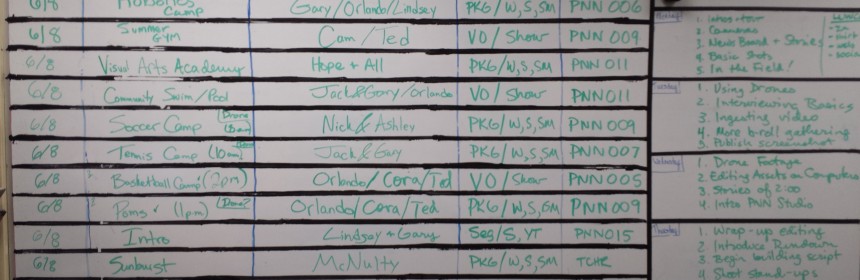 6/8 Robotics Camp Gary/Orlando/Lindsey PKG/W,S,SM PNN 006
6/8 Summer Gym Cam/Ted VO/Show PNN 009
6/8 Visual Arts Academy Hope + All PKG/W,S,SM PNN 011
6/8 Community Swim/Pool Jack&Gary/Orlando VO/Show PNN011
6/8 Soccer Camp Drone 10am Nick & Ashley PKG/W,S,SM PNN 009
6/8 Tennis Camp (10am) Jack & Gary PKG/W,S,SM PNN 007
6/8 Basketball Camp (2pm) Orlando/Cora/Ted VO/Show PNN 005
6/8 Poms (1pm) Drone? Orlando/Cora/Ted PKG/W,S,SM PNN009
6/8 Intro Lindsey + Gary Seg/S, YT PNN015
6/8 Sunburst McNulty PKG/W,S,SM TCHR
Monday
1. Intros + tour
2. Cameras
3. News Board + Stories
4. Basic Shots
5. In the Field!
Tuesday
1. Using Drones
2. Interviewing Basics
3. Ingesting video
4. More b-roll gathering
5. Publish screenshot
Wednesday
1. Drone Footage
2. Editing Assets on Computers
3. Stories of 2:00
4. Intro PNN Studio
Thursday
1. Wrap-up editing
2. Introduce Rundown
3. Begin building script
4. Shoot stand-ups